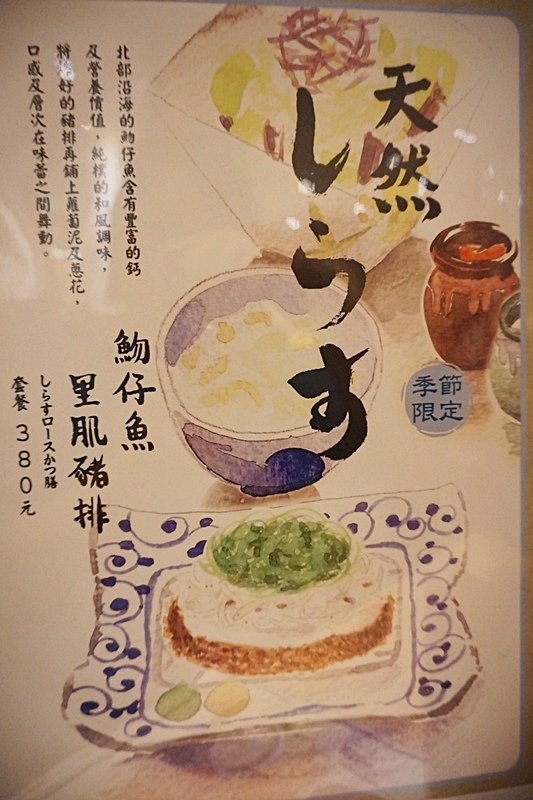 天然
しらす
季節
限定
北部沿海的魩仔魚含有豐富的鈣
及營養價值，純樸的和風調味，
將炸好的豬排再鋪上蘿蔔泥及蔥花，
口感及層次在味蕾之間舞動。
魩仔魚
里肌豬排
しらすロースかつ膳
套餐 380元